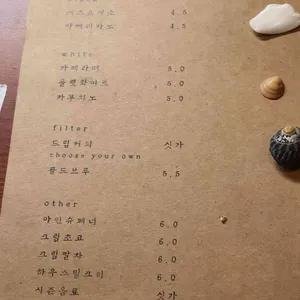 에스프레소 4.5
아메리카노 4.5
white
카페라떼 5.0
플랫화이트 5.0
카푸치노 5.0
filter
드립커피 싯가
choose your own
콜드브루 5.5
other
아인슈페너 6.0
크림초코 6.0
크림말차 6.0
하우스밀크티 6.0
시즌음료 싯가